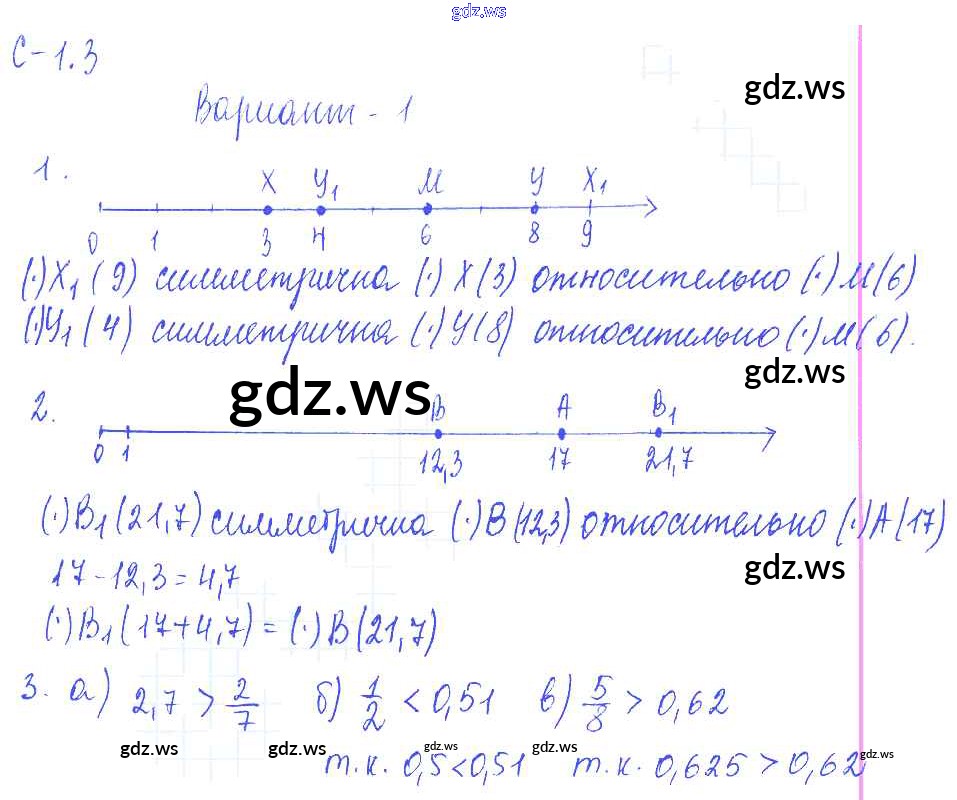 gdz.ws
С-1.3
gdz.ws
Вариант - 1
1.
X У₁ М У X₁
0 1 3 4 6 8 9
(·)X₁(9) симметрична (·) X(3) относительно (·)М(6)
(·)У₁(4) симметрична (·)У(8) относительно (·)М(6).
gdz.ws
gdz.ws
2.
B A B₁
0 1 12,3 17 21,7
(·)B₁(21,7) симметрична (·)B(12,3) относительно (·)A(17)
17-12,3=4,7
gdz.ws
(·)B₁(17+4,7)=(·)B(21,7)
3. а) 2,7 > 2/7 б) 1/2 < 0,51 в) 5/8 > 0,62
gdz.ws gdz.ws gdz.ws gdz.ws gdz.ws
т.к. 0,5<0,51 т.к. 0,625 > 0,62